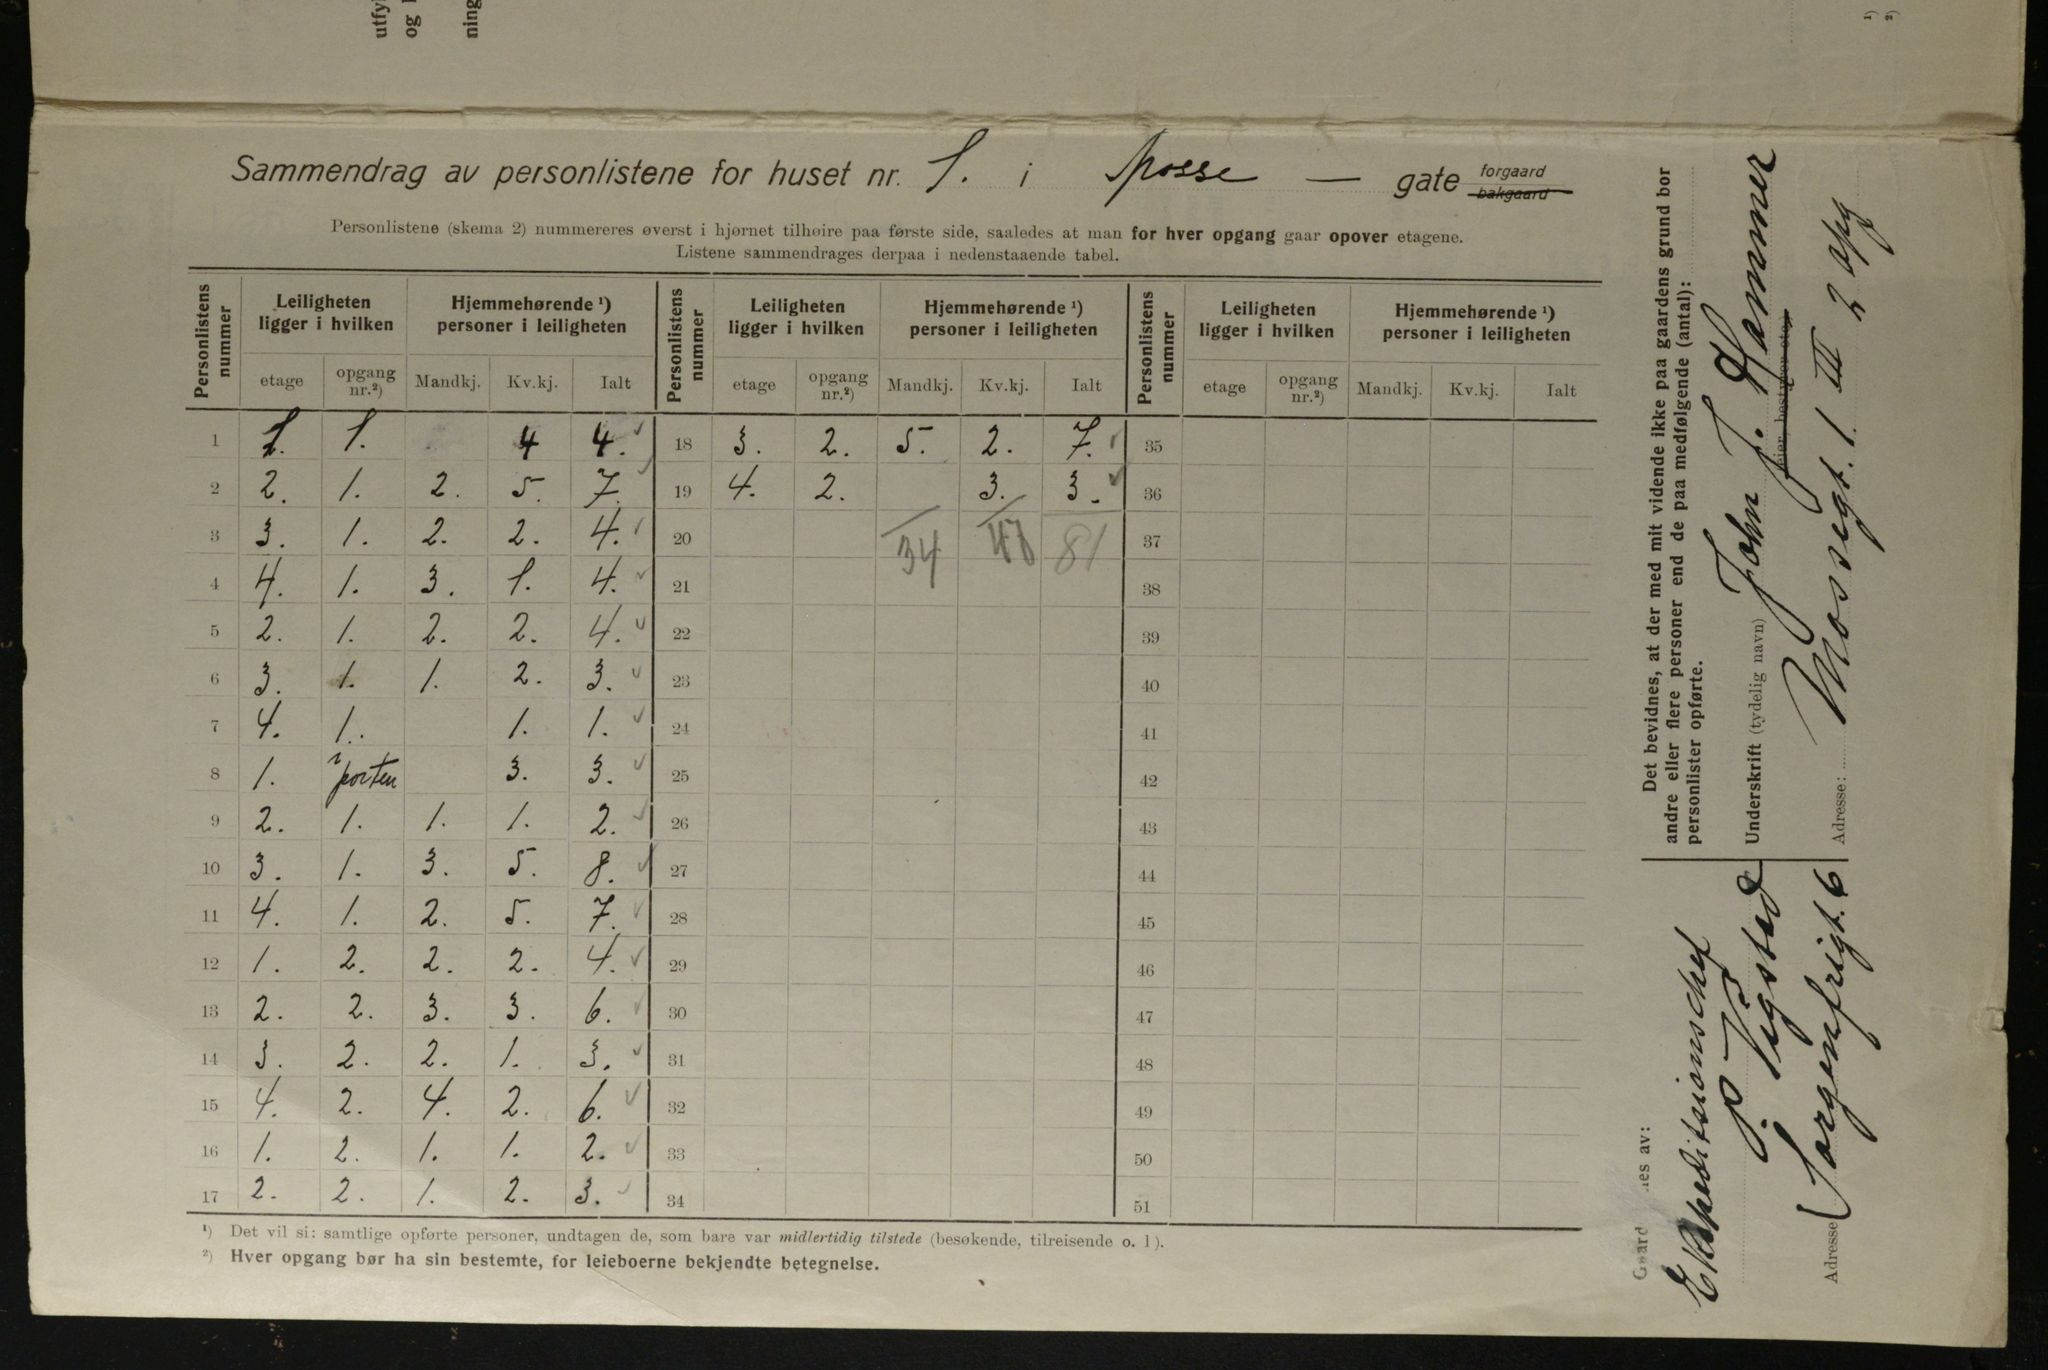 Sammendrag av personlistene for huset nr. 1. i Mosse — gate forgaard bakgaard
Personlistene (skema 2) nummereres øverst i hjørnet tilhøire paa første side, saaledes at man for hver opgang gaar opover etagene.
Listene sammendrages derpaa i nedenstaaende tabel.
Personlistens nummer | Leiligheten ligger i hvilken | Hjemmehørende ¹) personer i leiligheten | Personlistens nummer | Leiligheten ligger i hvilken | Hjemmehørende ¹) personer i leiligheten | Personlistens nummer | Leiligheten ligger i hvilken | Hjemmehørende ¹) personer i leiligheten
etage | opgang nr.²) | Mandkj. | Kv.kj. | Ialt | etage | opgang nr.²) | Mandkj. | Kv.kj. | Ialt | etage | opgang nr.²) | Mandkj. | Kv.kj. | Ialt
1 | 1. | 1. | | 4 | 4. | 18 | 3. | 2. | 5. | 2. | 7. | 35
2 | 2. | 1. | 2. | 5. | 7. | 19 | 4. | 2. | | 3. | 3. | 36
3 | 3. | 1. | 2. | 2. | 4. | 20 | | | 34 | | 81 | 37
4 | 4. | 1. | 3. | 1. | 4. | 21 | 38
5 | 2. | 1. | 2. | 2. | 4. | 22 | 39
6 | 3. | 1. | 1. | 2. | 3. | 23 | 40
7 | 4. | 1. | | 1. | 1. | 24 | 41
8 | 1. | i porten | | 3. | 3. | 25 | 42
9 | 2. | 1. | 1. | 1. | 2. | 26 | 43
10 | 3. | 1. | 3. | 5. | 8. | 27 | 44
11 | 4. | 1. | 2. | 5. | 7. | 28 | 45
12 | 1. | 2. | 2. | 2. | 4. | 29 | 46
13 | 2. | 2. | 3. | 3. | 6. | 30 | 47
14 | 3. | 2. | 2. | 1. | 3. | 31 | 48
15 | 4. | 2. | 4. | 2. | 6. | 32 | 49
16 | 1. | 2. | 1. | 1. | 2. | 33 | 50
17 | 2. | 2. | 1. | 2. | 3. | 34 | 51
¹) Det vil si: samtlige opførte personer, undtagen de, som bare var midlertidig tilstede (besøkende, tilreisende o. l).
²) Hver opgang bør ha sin bestemte, for leieboerne bekjendte betegnelse.
Det bevidnes, at der med mit vidende ikke paa gaardens grund bor
andre eller flere personer end de paa medfølgende (antal):
personlister opførte.
Underskrift (tydelig navn) John J. Hammer
eier, bestyrer etc.
Adresse: Mossegt. 1 III 2 opg
Gaard es av:
Ekspeditionschef
P. Vigstad
Adresse Sorgenfrigt. 6
utfy
og
ning
¹)
²)